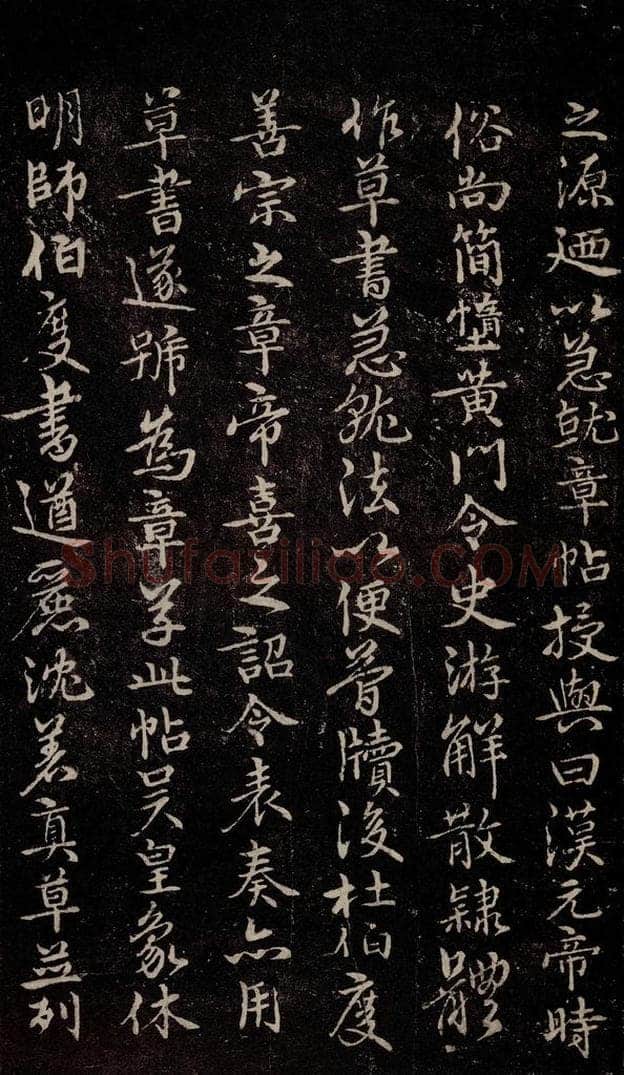 之源廼以急就章帖授與曰漢元帝時
俗尚簡惰黃門令史游解散隸體
作草書急就法以便笥牘後杜伯度
善宗之章帝喜之詔令表奏亦用
草書遂號為章草此帖吳皇象休
明師伯度書遒麗沈著真草並列
Shufaziliao.COM